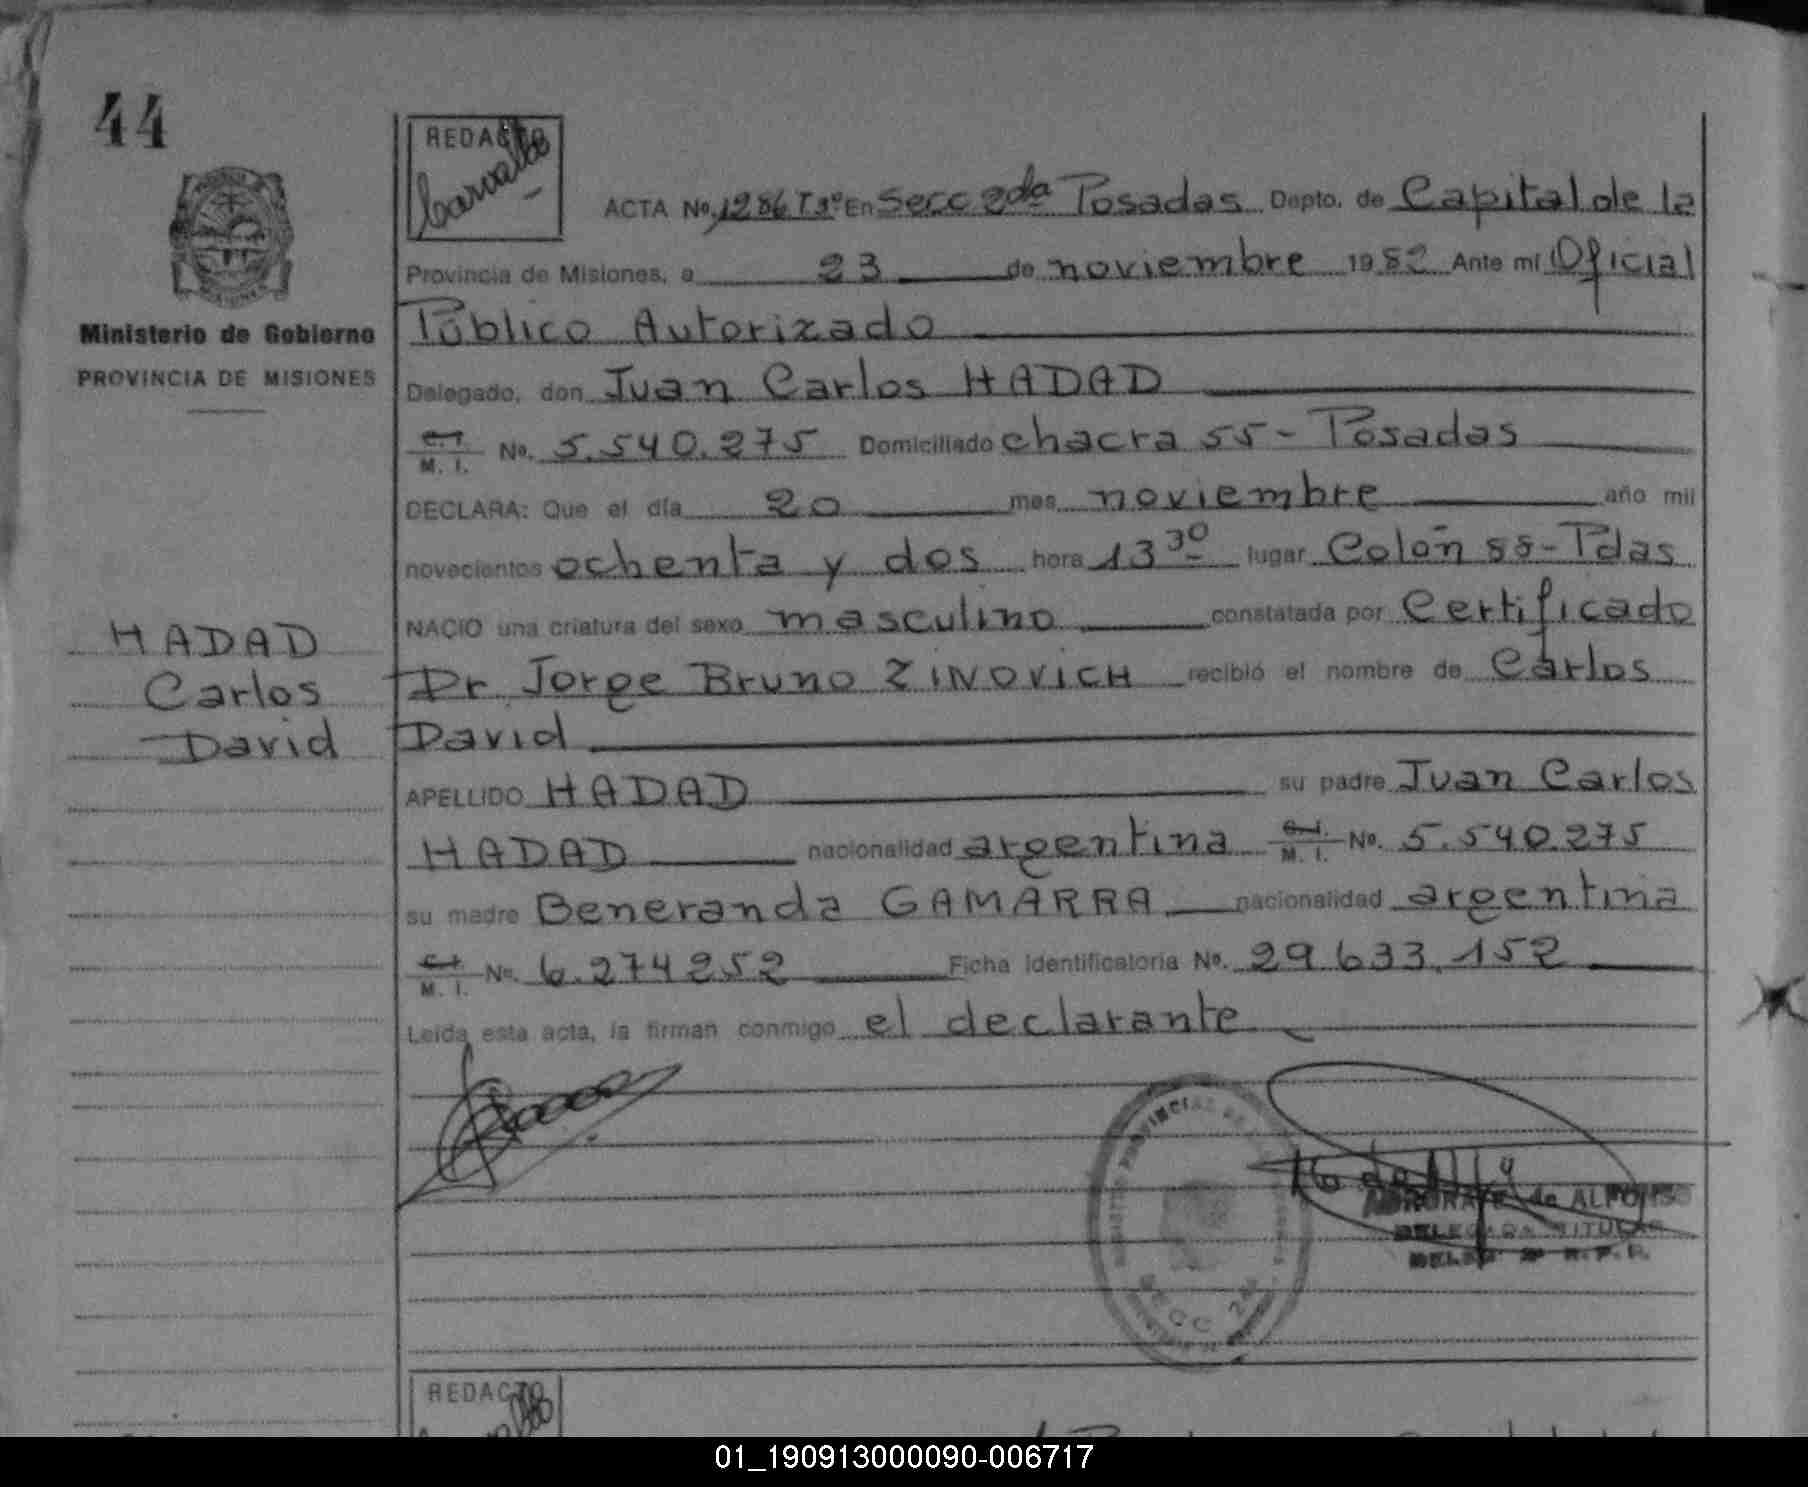 44
REDACTO
Carvallo
ACTA No. 1286 T 3º En Secc 2da Posadas Depto. de Capital de la
Provincia de Misiones, a 23 de noviembre 1982 Ante mí Oficial
Público Autorizado
Ministerio de Gobierno
PROVINCIA DE MISIONES
Delegado, don Juan Carlos HADAD
C.I. M. I. No. 5.540.275 Domiciliado chacra 55 - Posadas
DECLARA: Que el día 20 mes noviembre año mil
novecientos ochenta y dos hora 13 30 lugar Colón 55 - Pdas
NACIO una criatura del sexo masculino constatada por Certificado
HADAD
Carlos
David
Dr Jorge Bruno ZINOVICH recibió el nombre de Carlos
David
APELLIDO HADAD su padre Juan Carlos
HADAD nacionalidad argentina C.I. M. I. No. 5.540.275
su madre Beneranda GAMARRA nacionalidad argentina
C.I. M. I. No. 6.274252 Ficha Identificatoria No. 29.633.152
Leída esta acta, la firman conmigo el declarante
de ALFONSO
DELEGADA TITULAR
SECC 2da
REDACTO
01_190913000090-006717